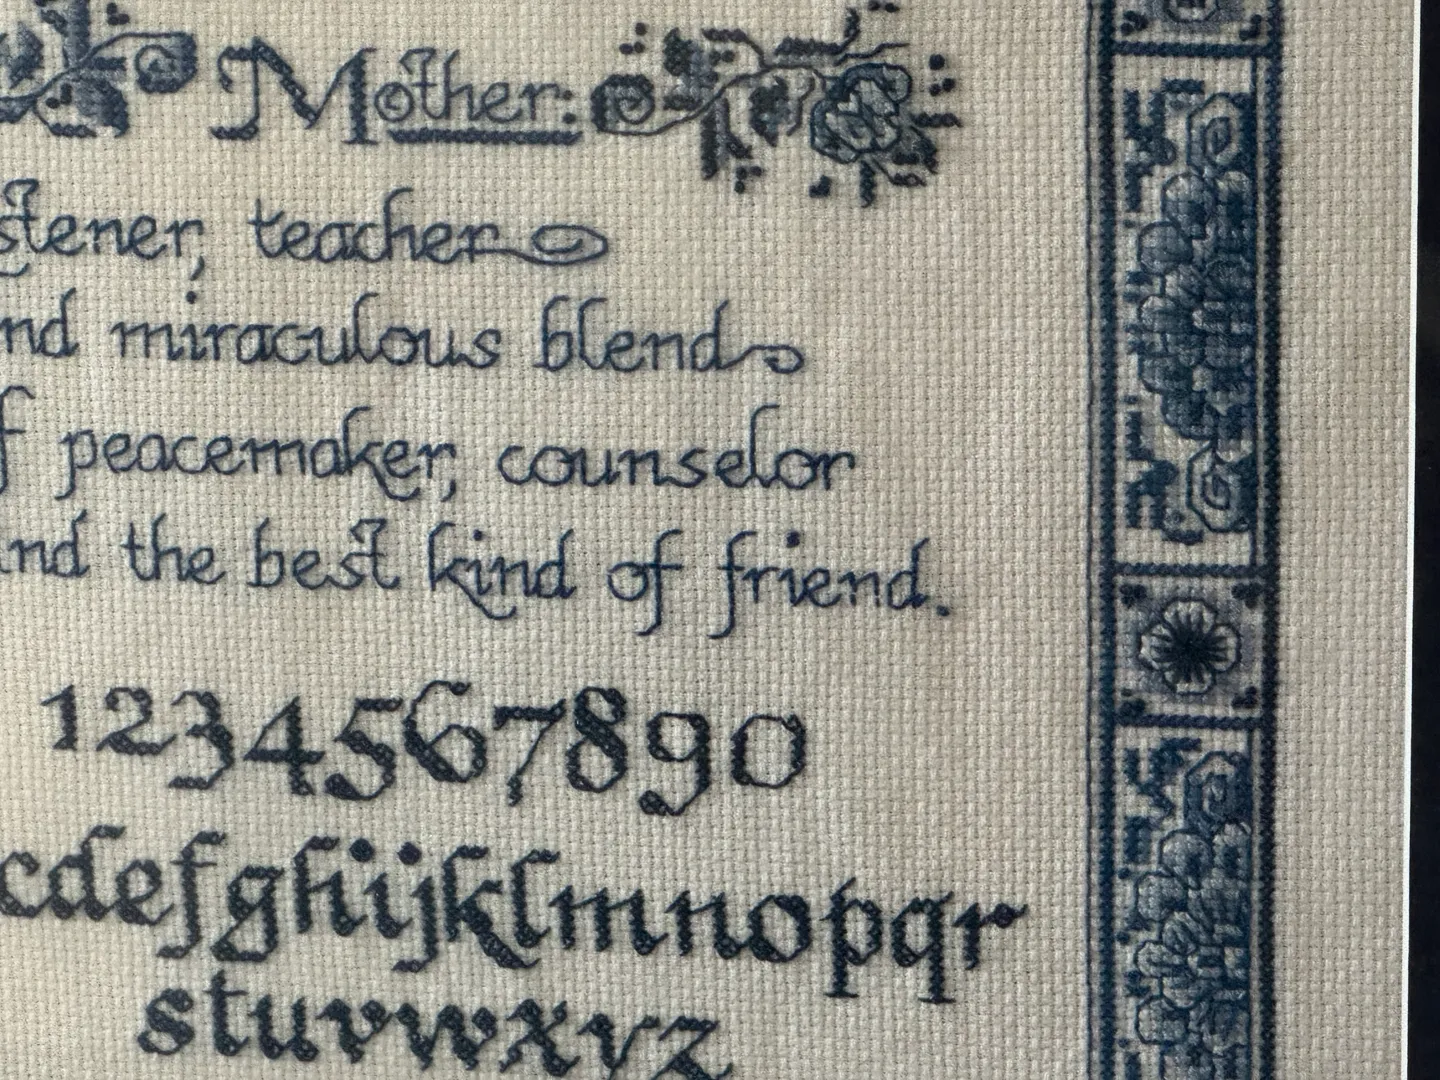 Mother:
stener, teacher
nd miraculous blend
f peacemaker, counselor
nd the best kind of friend.
1234567890
cdefghijklmnopqr
stuvwxyz